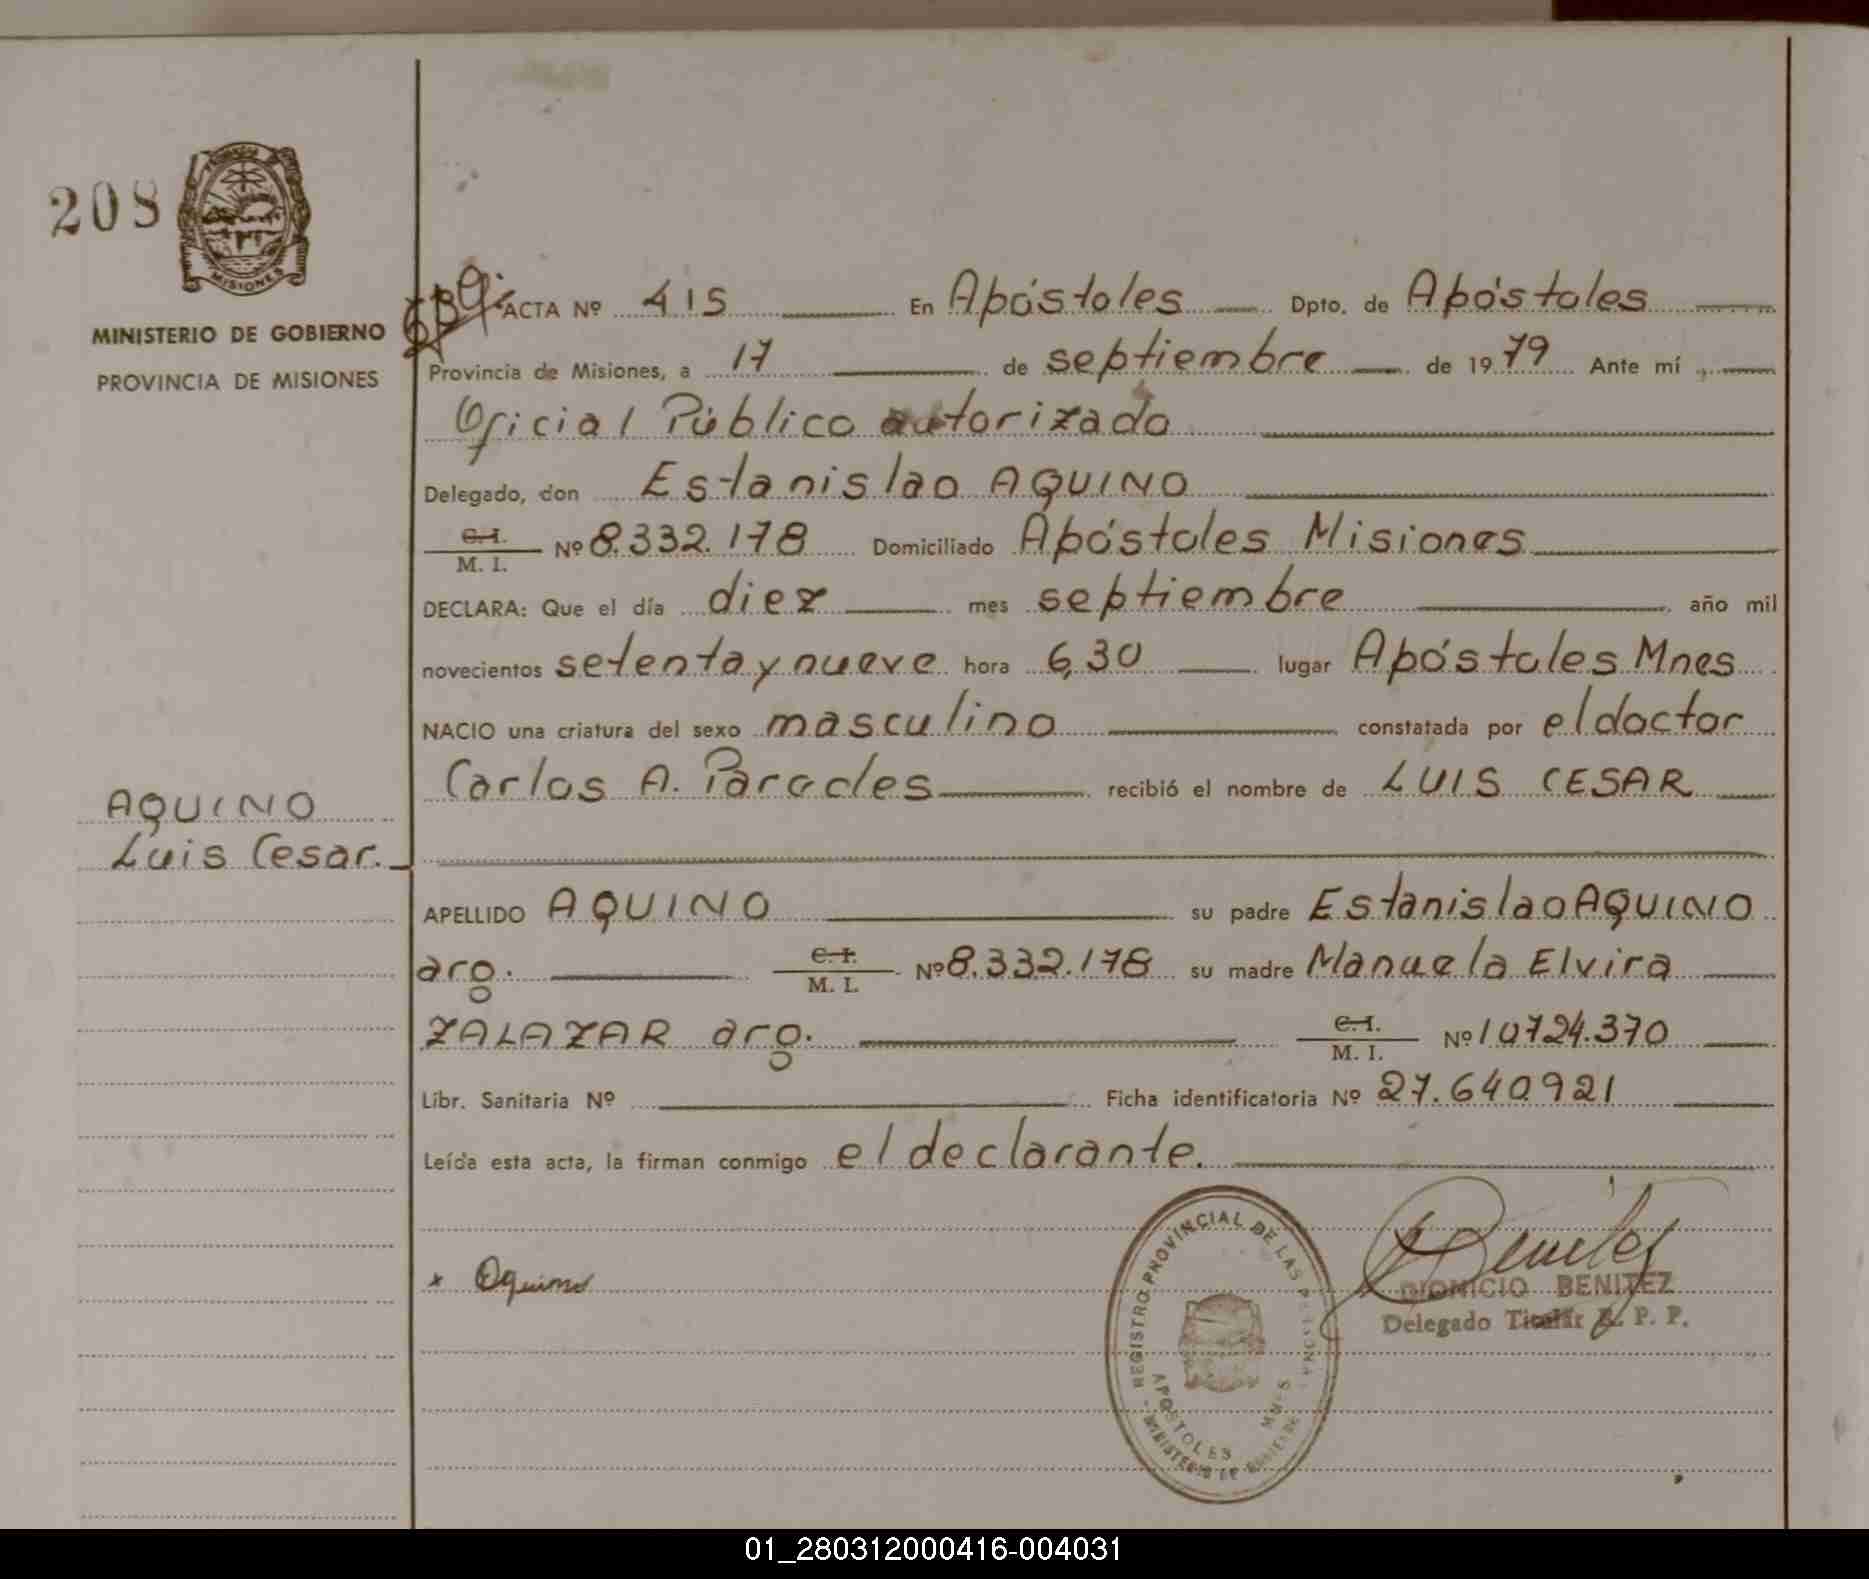 208
MISIONES
MINISTERIO DE GOBIERNO
PROVINCIA DE MISIONES
ACTA Nº 415 En Apóstoles Dpto. de Apóstoles
Provincia de Misiones, a 17 de septiembre de 1979 Ante mí
Oficial Público autorizado
Delegado, don Estanislao AQUINO
C. I. M. I. Nº 8.332.178 Domiciliado Apóstoles Misiones
DECLARA: Que el día diez mes septiembre año mil
novecientos setenta y nueve hora 6,30 lugar Apóstoles Mnes
NACIO una criatura del sexo masculino constatada por el doctor
Carlos A. Paredes recibió el nombre de LUIS CESAR
AQUINO
Luis Cesar.
APELLIDO AQUINO su padre Estanislao AQUINO
arg. C. I. M. I. Nº 8.332.178 su madre Manuela Elvira
ZALAZAR arg. C. I. M. I. Nº 10724.370
Libr. Sanitaria Nº Ficha identificatoria Nº 27.640921
Leída esta acta, la firman conmigo el declarante.
Aquino
Benitez
DIONICIO BENITEZ
Delegado Titular R. P. P.
REGISTRO PROVINCIAL DE LAS PERSONAS
APOSTOLES MNES
MINISTERIO DE GOBIERNO
01_280312000416-004031